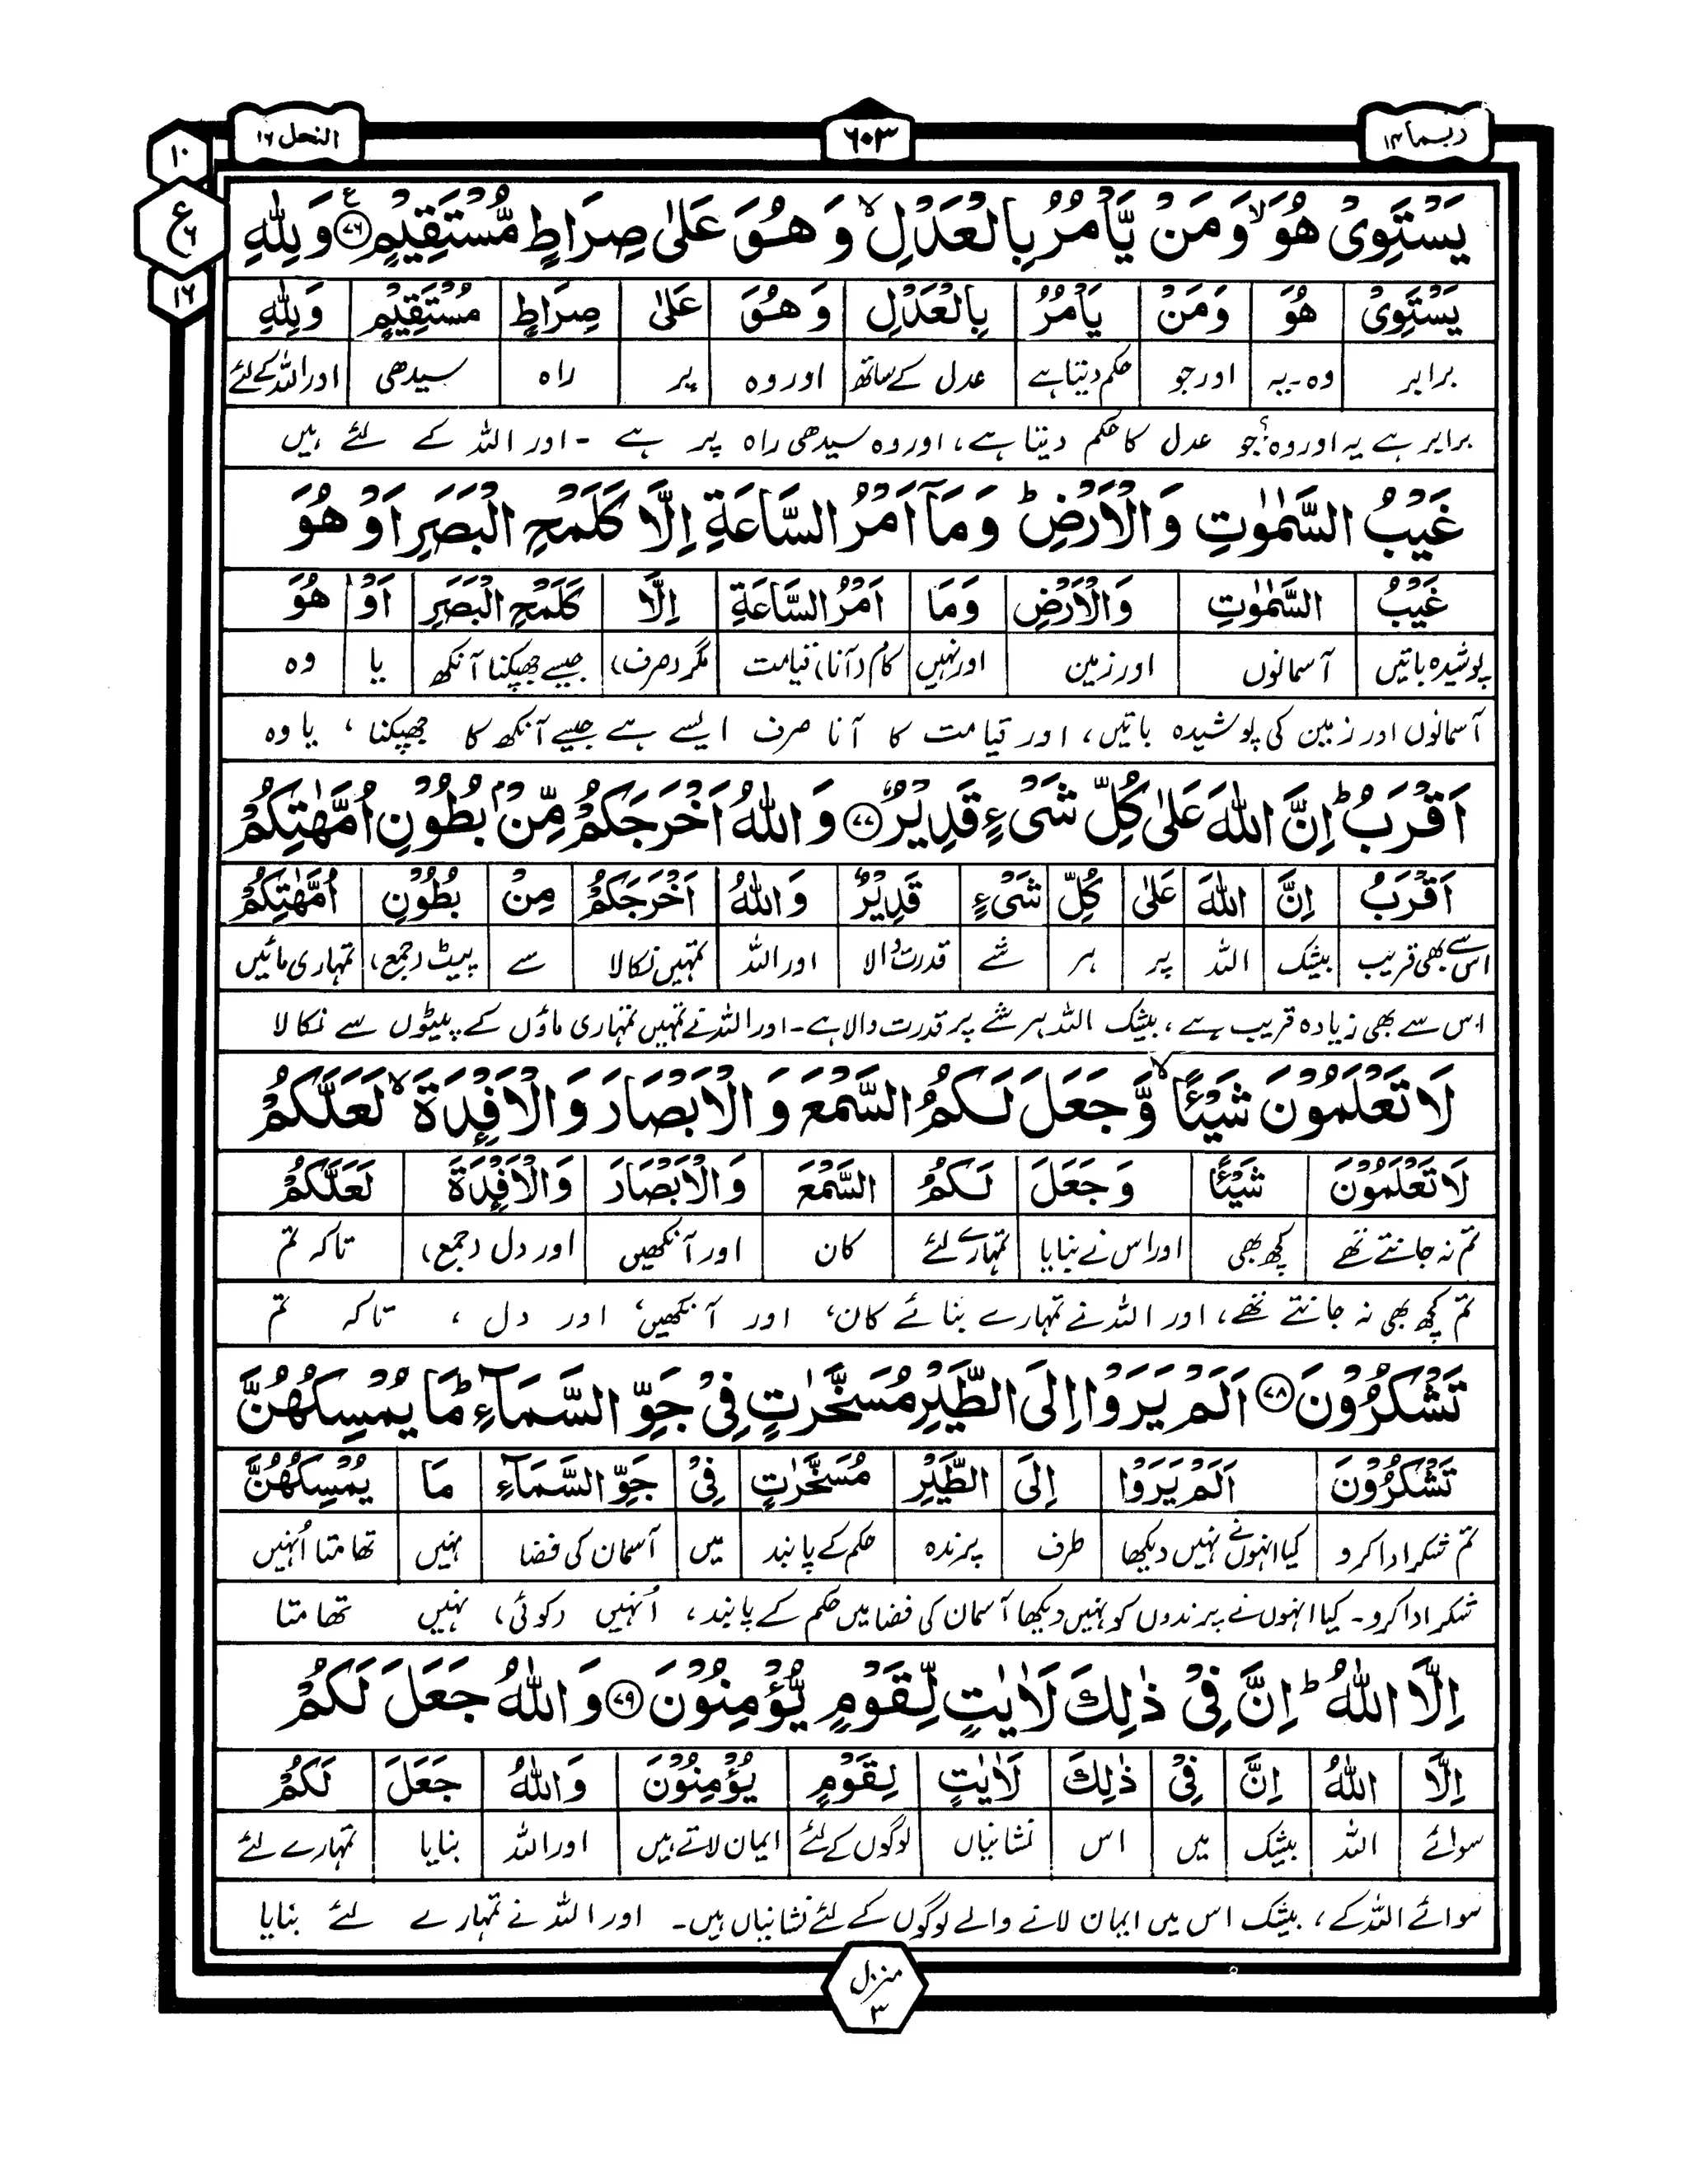 ربما ۱۴
۶۰۳
النحل ۱۶
۱۰
ع
۶
۱۶
يَسْتَوِىْ هُوَ ۙ وَ مَنْ يَّاْمُرُ بِالْعَدْلِ ۙ وَ هُوَ عَلٰى صِرَاطٍ مُّسْتَقِيْمٍ ﴿۷۶﴾ وَ لِلّٰهِ
يَسْتَوِىْ هُوَ وَمَنْ يَاْمُرُ بِالْعَدْلِ وَ هُوَ عَلٰى صِرَاطٍ مُسْتَقِيْمٍ وَلِلّٰهِ
برابر وہ۔یہ اور جو حکم دیتا ہے عدل کے ساتھ اور وہ پر راہ سیدھی اور اللہ کے لئے
برابر ہے یہ اور وہ جو عدل کا حکم دیتا ہے، اور وہ سیدھی راہ پر ہے - اور اللہ کے لئے ہیں
غَيْبُ السَّمٰوٰتِ وَالْاَرْضِ ؕ وَمَاۤ اَمْرُ السَّاعَةِ اِلَّا كَلَمْحِ الْبَصَرِ اَوْ هُوَ
غَيْبُ السَّمٰوٰتِ وَالْاَرْضِ وَمَا اَمْرُ السَّاعَةِ اِلَّا كَلَمْحِ الْبَصَرِ اَوْ هُوَ
پوشیدہ باتیں آسمانوں اور زمین اور نہیں کام (آنا) قیامت مگر (صرف) جیسے جھپکنا آنکھ یا وہ
آسمانوں اور زمین کی پوشیدہ باتیں، اور قیامت کا آنا صرف ایسے ہے جیسے آنکھ کا جھپکنا ، یا وہ
اَقْرَبُ ؕ اِنَّ اللّٰهَ عَلٰى كُلِّ شَىْءٍ قَدِيْرٌ ﴿۷۷﴾ وَ اللّٰهُ اَخْرَجَكُمْ مِّنْۢ بُطُوْنِ اُمَّهٰتِكُمْ
اَقْرَبُ اِنَّ اللّٰهَ عَلٰى كُلِّ شَىْءٍ قَدِيْرٌ وَاللّٰهُ اَخْرَجَكُمْ مِنْ بُطُوْنِ اُمَّهٰتِكُمْ
اس سے بھی قریب بیشک اللہ پر ہر شے قدرت والا اور اللہ تمہیں نکالا سے پیٹ (جمع) تمہاری مائیں
اس سے بھی زیادہ قریب ہے، بیشک اللہ ہر شے پر قدرت والا ہے۔ اور اللہ نے تمہیں تمہاری ماؤں کے پیٹوں سے نکالا
لَا تَعْلَمُوْنَ شَيْـًٔا ۙ وَّ جَعَلَ لَكُمُ السَّمْعَ وَ الْاَبْصَارَ وَ الْاَفْـِٕدَةَ ۙ لَعَلَّكُمْ
لَا تَعْلَمُوْنَ شَيْـًٔا وَ جَعَلَ لَكُمُ السَّمْعَ وَالْاَبْصَارَ وَالْاَفْـِٕدَةَ لَعَلَّكُمْ
تم نہ جانتے تھے کچھ بھی اور اس نے بنایا تمہارے لئے کان اور آنکھیں اور دل (جمع) تاکہ تم
تم کچھ بھی نہ جانتے تھے، اور اللہ نے تمہارے بنائے کان، اور آنکھیں، اور دل ، تاکہ تم
تَشْكُرُوْنَ ﴿۷۸﴾ اَلَمْ يَرَوْا اِلَى الطَّيْرِ مُسَخَّرٰتٍ فِىْ جَوِّ السَّمَآءِ ؕ مَا يُمْسِكُهُنَّ
تَشْكُرُوْنَ اَلَمْ يَرَوْا اِلَى الطَّيْرِ مُسَخَّرٰتٍ فِىْ جَوِّ السَّمَآءِ مَا يُمْسِكُهُنَّ
تم شکر ادا کرو کیا انہوں نے نہیں دیکھا طرف پرندہ حکم کے پابند میں آسمان کی فضا نہیں تھامتا اُنہیں
شکر ادا کرو۔ کیا انہوں نے پرندوں کو نہیں دیکھا آسمان کی فضا میں حکم کے پابند، اُنہیں (کوئی) نہیں تھامتا
اِلَّا اللّٰهُ ؕ اِنَّ فِىْ ذٰلِكَ لَاٰيٰتٍ لِّقَوْمٍ يُّؤْمِنُوْنَ ﴿۷۹﴾ وَ اللّٰهُ جَعَلَ لَكُمْ
اِلَّا اللّٰهُ اِنَّ فِىْ ذٰلِكَ لَاٰيٰتٍ لِقَوْمٍ يُؤْمِنُوْنَ وَاللّٰهُ جَعَلَ لَكُمْ
سوائے اللہ بیشک میں اس نشانیاں لوگوں کے لئے ایمان لاتے ہیں اور اللہ بنایا تمہارے لئے
سوائے اللہ کے، بیشک اس میں ایمان لانے والے لوگوں کے لئے نشانیاں ہیں۔ اور اللہ نے تمہارے لئے بنایا
منزل
۳